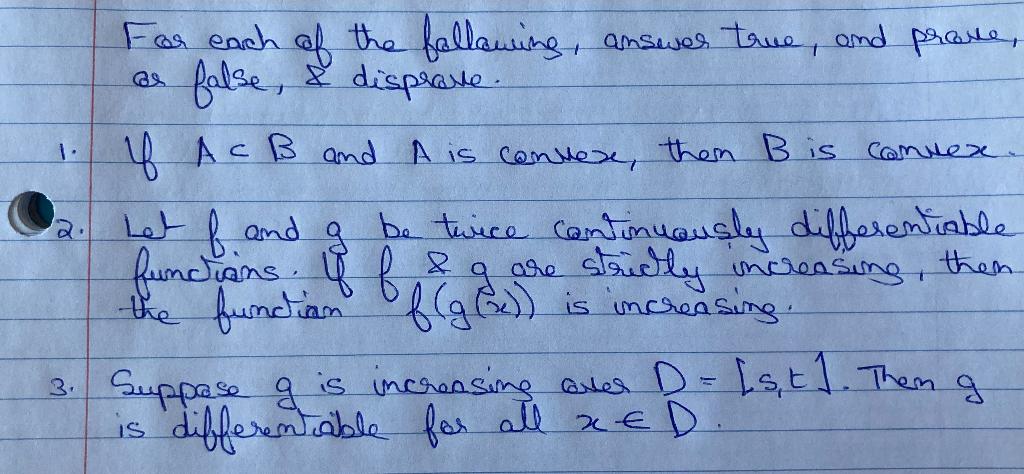 For each of the following, answer true, and prove,
or false, & disprove.
1. If A ⊂ B and A is convex, then B is convex.
2. Let f and g be twice continuously differentiable
functions. If f & g are strictly increasing, then
the function f(g(x)) is increasing.
3. Suppose g is increasing over D = [s,t]. Then g
is differentiable for all x ∈ D.